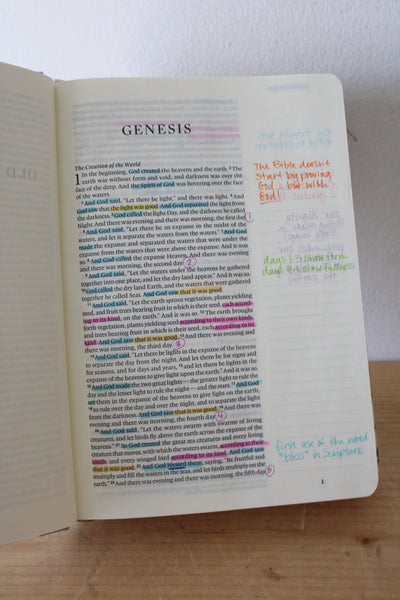 OLD
GENESIS
The Creation of the World
1 In the beginning, God created the heavens and the earth. 2 The
earth was without form and void, and darkness was over the
face of the deep. And the Spirit of God was hovering over the face
of the waters.
3 And God said, "Let there be light," and there was light. 4 And
God saw that the light was good. And God separated the light from
the darkness. 5 God called the light Day, and the darkness he called
Night. And there was evening and there was morning, the first day.
1
6 And God said, "Let there be an expanse in the midst of the
waters, and let it separate the waters from the waters." 7 And God
made the expanse and separated the waters that were under the
expanse from the waters that were above the expanse. And it was
so. 8 And God called the expanse Heaven. And there was evening
and there was morning, the second day.
2
9 And God said, "Let the waters under the heavens be gathered
together into one place, and let the dry land appear." And it was so.
10 God called the dry land Earth, and the waters that were gathered
together he called Seas. And God saw that it was good.
11 And God said, "Let the earth sprout vegetation, plants yielding
seed, and fruit trees bearing fruit in which is their seed, each accord-
ing to its kind, on the earth." And it was so. 12 The earth brought
forth vegetation, plants yielding seed according to their own kinds,
and trees bearing fruit in which is their seed, each according to its
kind. And God saw that it was good. 13 And there was evening and
there was morning, the third day.
3
14 And God said, "Let there be lights in the expanse of the heavens
to separate the day from the night. And let them be for signs and
for seasons, and for days and years, 15 and let them be lights in the
expanse of the heavens to give light upon the earth." And it was so.
16 And God made the two great lights—the greater light to rule the
day and the lesser light to rule the night—and the stars. 17 And God
set them in the expanse of the heavens to give light on the earth,
18 to rule over the day and over the night, and to separate the light
from the darkness. And God saw that it was good. 19 And there was
evening and there was morning, the fourth day.
4
20 And God said, "Let the waters swarm with swarms of living
creatures, and let birds fly above the earth across the expanse of the
heavens." 21 So God created the great sea creatures and every living
creature that moves, with which the waters swarm, according to their
kinds, and every winged bird according to its kind. And God saw
that it was good. 22 And God blessed them, saying, "Be fruitful and
multiply and fill the waters in the seas, and let birds multiply on the
earth." 23 And there was evening and there was morning, the fifth day.
5
The Bible doesn't
start by proving
God... but with
God!
days 1-3 show form
days 4-6 show fullness
first use of the word
"bless" in Scripture
1